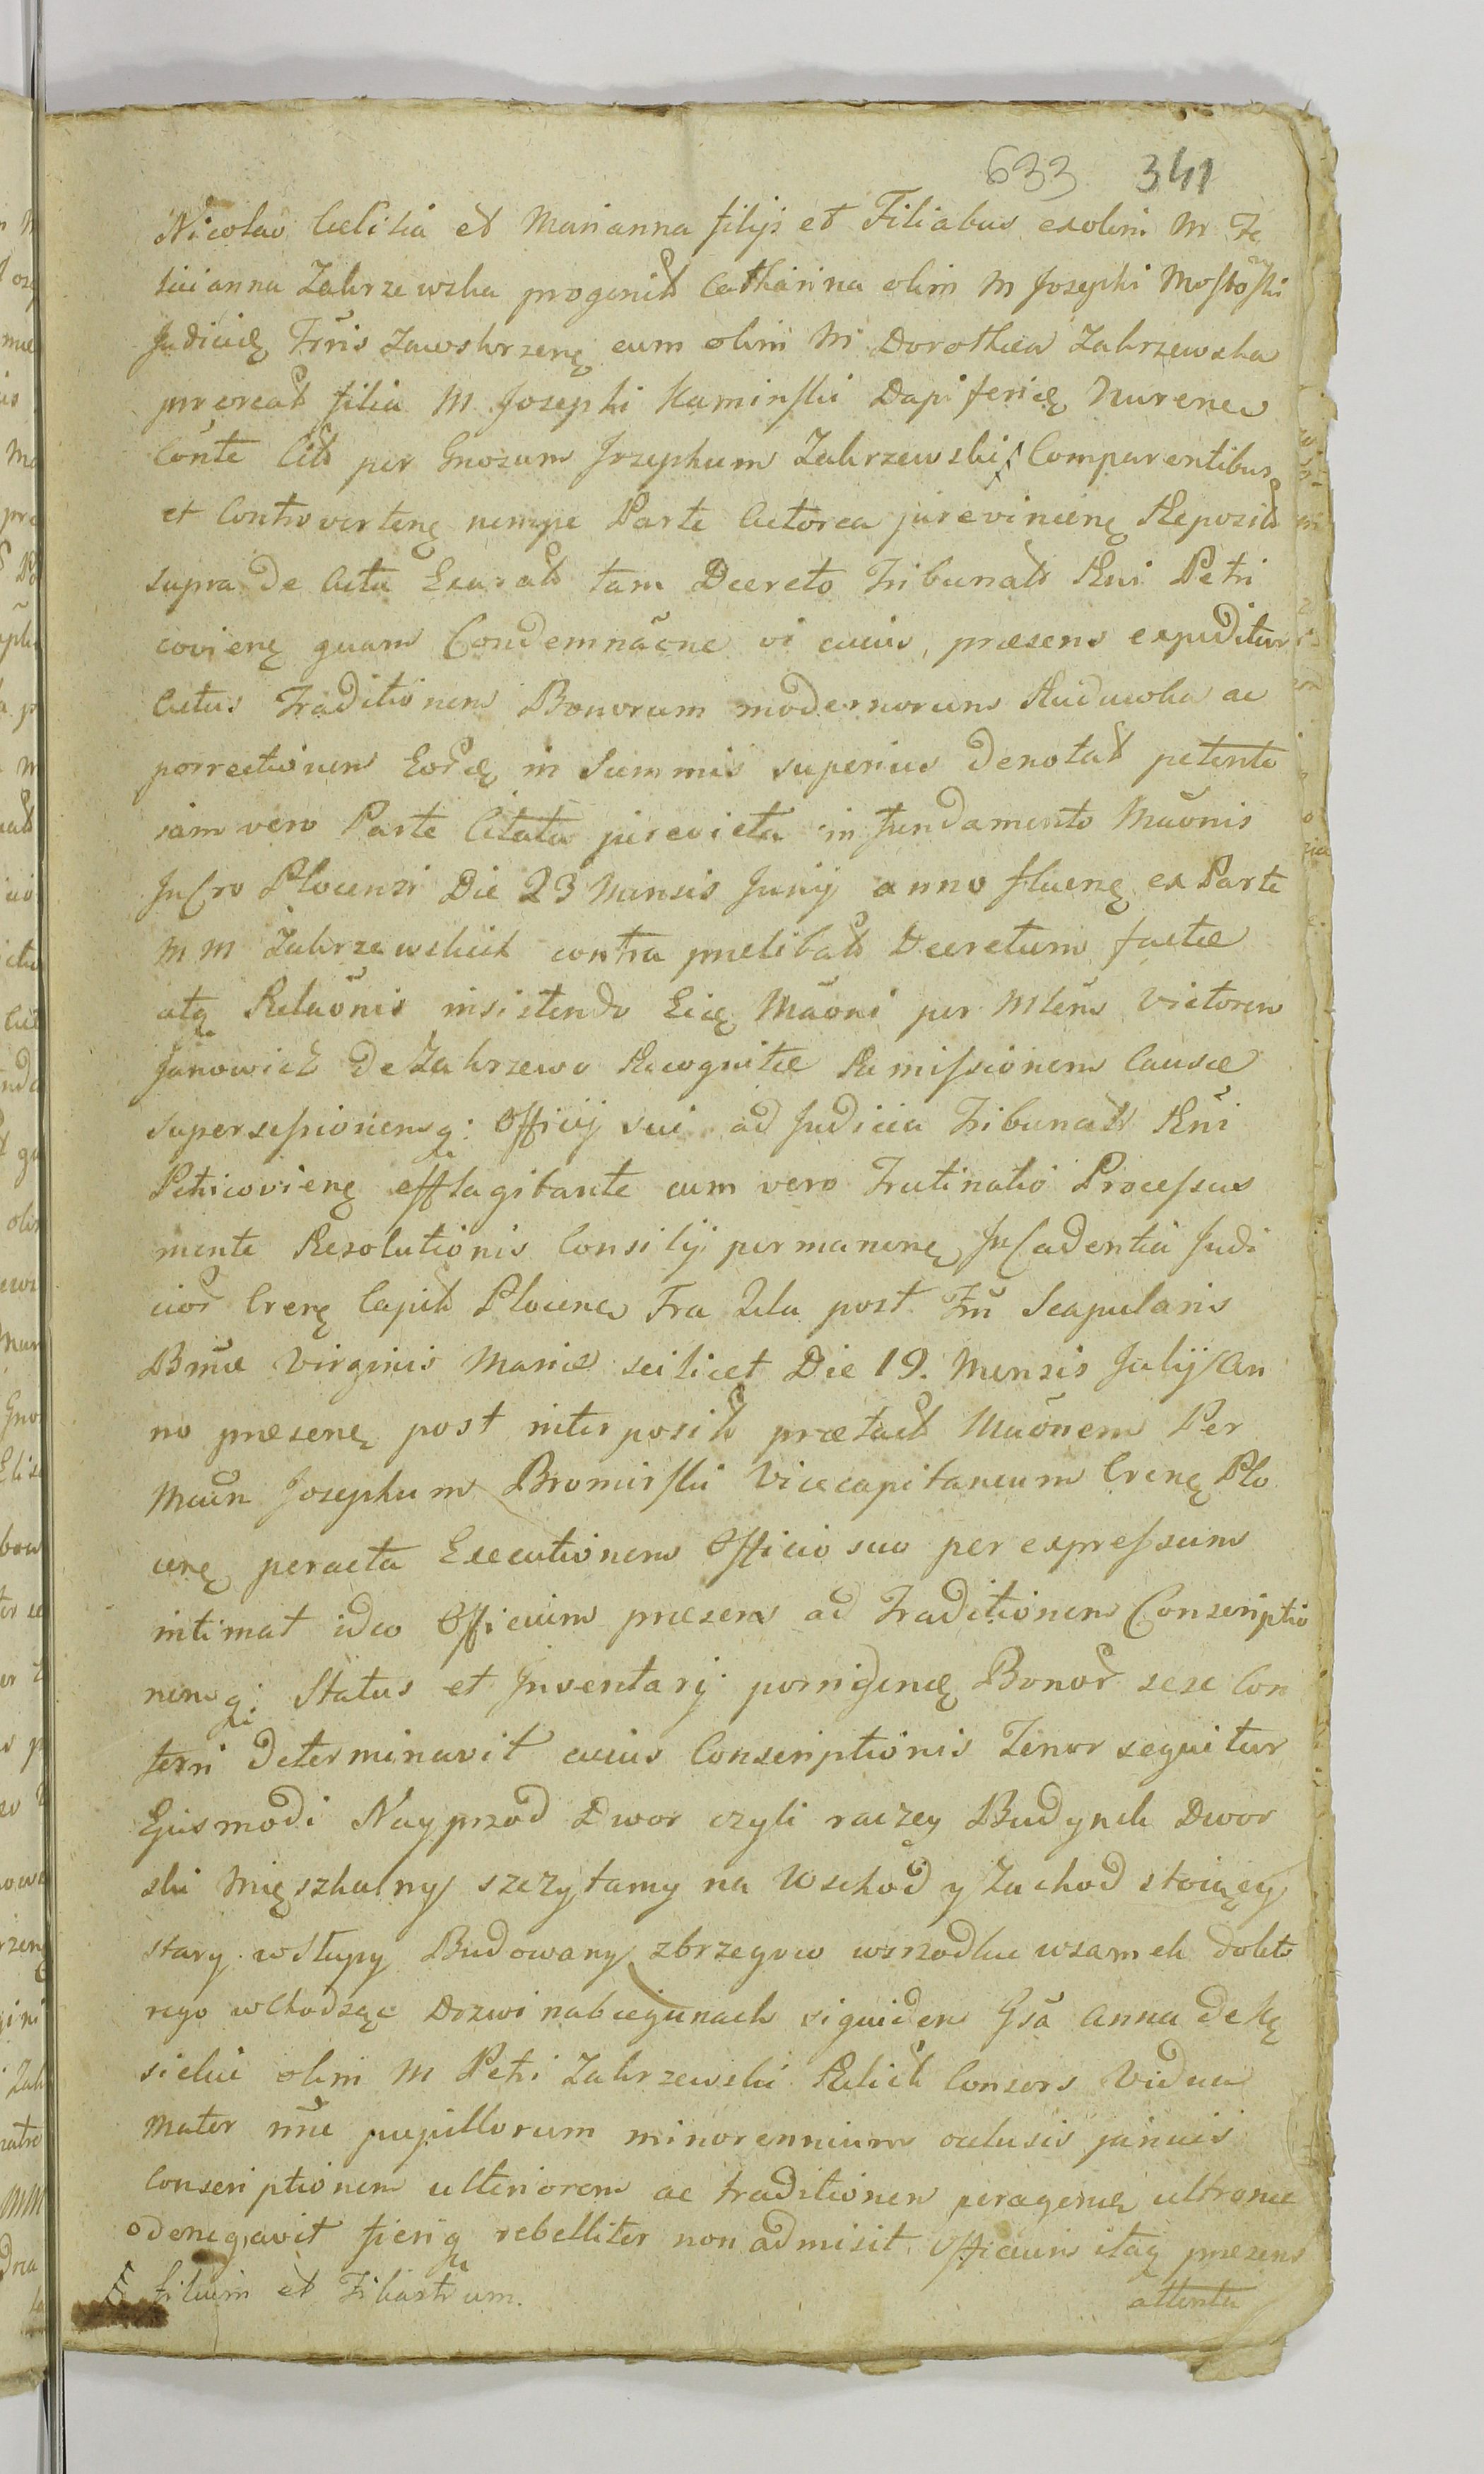 633 341
Nicolao Cælitia et Marianna filijs et Filiabus exolim M Fe
liciannu Zakrzewska progenit Catharina olim M Josephi Mostowski
Judicię Tr̃ris Zawskrzenę cum olim M Dorothea Zakrzewska
procreat filia M Josephi Kaminski Dapifericę Nurenẽ
Cõnte Cit per Gnosum Josephum Zakrzewski Comparentibus
et Controvertenę nempe Parte Actorea jurevincenę Reposit
supra de Actu Exarat tam Decreto Tribunals Rñi Petri
covienę quam Condemnãone vi cuius præsens expeditur
Actus Traditionem Bonorum modernorum Rudawka ac
porrectionem Eordę in Summis superius denotat petente
iam vero Parte Citata jurevicta in fundamento Mãonis
In Cro Plocensi Die 23 Mensis Junij anno fluenę ex Parte
M M Zakrzewskich contra prælibat Decretum factæ
atq Relaõnis insistendo Eicę Mãoni per Mlem Victorem
Janowicz de Zakrzewo Recognitæ Remissionem Causæ
supersessionemq: Officij sui ad Judicia Tribunals Rñi
Petricovienę efflagitante cum vero Trutinatio Processus
mente Resolutionis Consilij permanenę In Cadentia Judi
cior Crenę Capit Plocenẽ Fra 2da post Fm̃ Scapularis
Bmæ Virginis Mariæ scilicet Die 19. Mensis Julij An
no præsenę post interposit prætact Mãonem Per
Mcum Josephum Bromirski Vicecapitaneum Crenę Plo
cenę peracta Executionem Officio suo per expressum
intimat ideo Officium præsens ad Traditionem Conscriptio
nemq: Status et Inventarij porrigendę Bonor sese Con
ferri determinavit cuius Conscriptionis Tenor sequitur
Ejusmodi Nayprzod Dwor czyli raczey Budynek Dwor
ski Mięszkalny szczytamy na Wschod y Zachod stoiący
stary wSłupy Budowany zbrzegow wsrzodku wzamek dokto
rego wchodząc Drzwi nabiegunach siquidem Gsã Anna de Kę
sickie olim M Petri Zakrzewski Relict Consors Vidua
Mater nne pupillorum minorennium oclusis januis
Conscriptionem ulteriorem ac traditionem peragendę ultronee
odenegavit fieriq rebelliter non admisit Officium itaq præsens
filium et Filiastrum.
attento